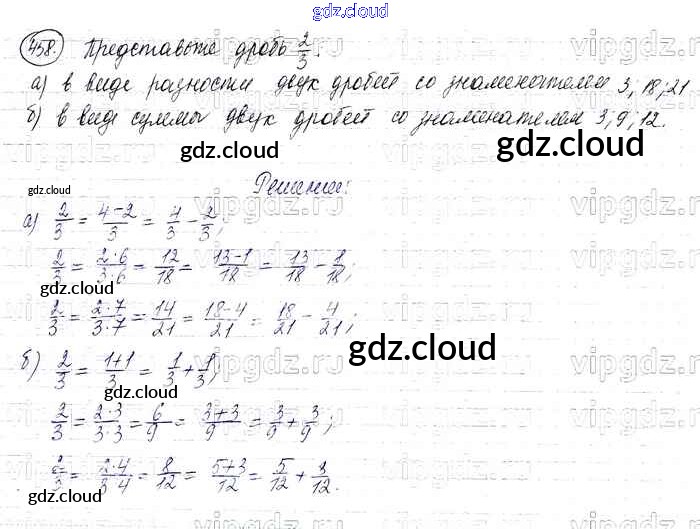 gdz.cloud
458. Представьте дробь 2/3:
а) в виде разности двух дробей со знаменателем 3; 18; 21
б) в виде суммы двух дробей со знаменателем 3, 9, 12.
gdz.cloud gdz.cloud
gdz.cloud
Решение:
а) 2/3 = (4-2)/3 = 4/3 - 2/3;
2/3 = (2·6)/(3·6) = 12/18 = (13-1)/18 = 13/18 - 1/18;
gdz.cloud
2/3 = (2·7)/(3·7) = 14/21 = (18-4)/21 = 18/21 - 4/21;
gdz.cloud
б) 2/3 = (1+1)/3 = 1/3 + 1/3;
gdz.cloud
2/3 = (2·3)/(3·3) = 6/9 = (3+3)/9 = 3/9 + 3/9;
gdz.cloud
2/3 = (2·4)/(3·4) = 8/12 = (5+3)/12 = 5/12 + 3/12.
gdz.cloud
gdz.cloud